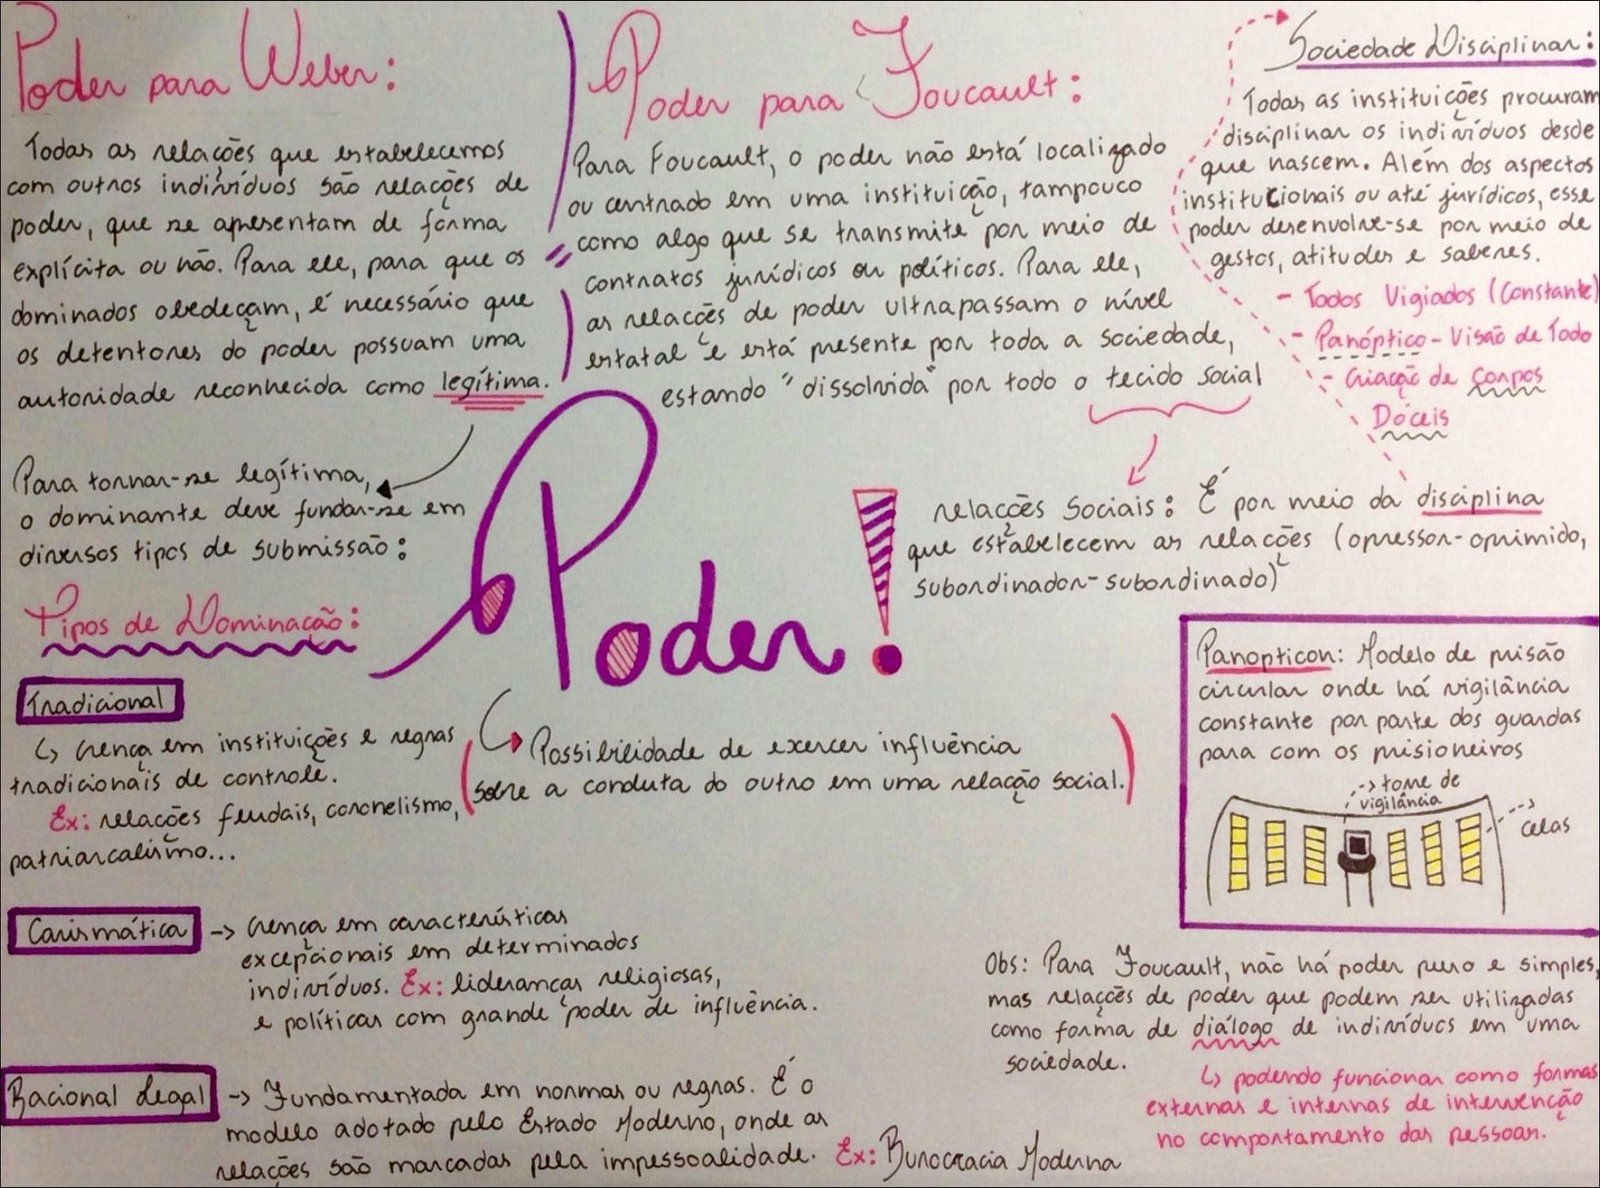 Poder para Weber:
Todas as relações que estabelecemos
com outros indivíduos são relações de
poder, que se apresentam de forma
explícita ou não. Para ele, para que os
dominados obedeçam, é necessário que
os detentores do poder possuam uma
autoridade reconhecida como legítima.
Para tornar-se legítima,
o dominante deve fundar-se em
diversos tipos de submissão:
Tipos de Dominação:
Tradicional
↳ crença em instituições e regras
tradicionais de controle.
Ex: relações feudais, coronelismo,
patriarcalismo...
Carismática -> crença em características
excepcionais em determinados
indivíduos. Ex: lideranças religiosas,
e políticas com grande poder de influência.
Racional Legal -> Fundamentada em normas ou regras. É o
modelo adotado pelo Estado Moderno, onde as
relações são marcadas pela impessoalidade. Ex: Burocracia Moderna
Poder!
Possibilidade de exercer influência
sobre a conduta do outro em uma relação social.
Poder para Foucault:
Para Foucault, o poder não está localizado
ou centrado em uma instituição, tampouco
como algo que se transmite por meio de
contratos jurídicos ou políticos. Para ele,
as relações de poder ultrapassam o nível
estatal e está presente por toda a sociedade,
estando "dissolvida" por todo o tecido social
relações sociais: É por meio da disciplina
que estabelecem as relações (opressor-oprimido,
subordinador-subordinado)
Sociedade Disciplinar:
Todas as instituições procuram
disciplinar os indivíduos desde
que nascem. Além dos aspectos
institucionais ou até jurídicos, esse
poder desenvolve-se por meio de
gestos, atitudes e saberes.
- Todos Vigiados (Constante)
- Panóptico - Visão de Todo
- Criação de Corpos
Dóceis
Panopticon: Modelo de prisão
circular onde há vigilância
constante por parte dos guardas
para com os prisioneiros
--> torre de
vigilância
celas
Obs: Para Foucault, não há poder puro e simples,
mas relações de poder que podem ser utilizadas
como forma de diálogo de indivíduos em uma
sociedade.
↳ podendo funcionar como formas
externas e internas de intervenção
no comportamento das pessoas.